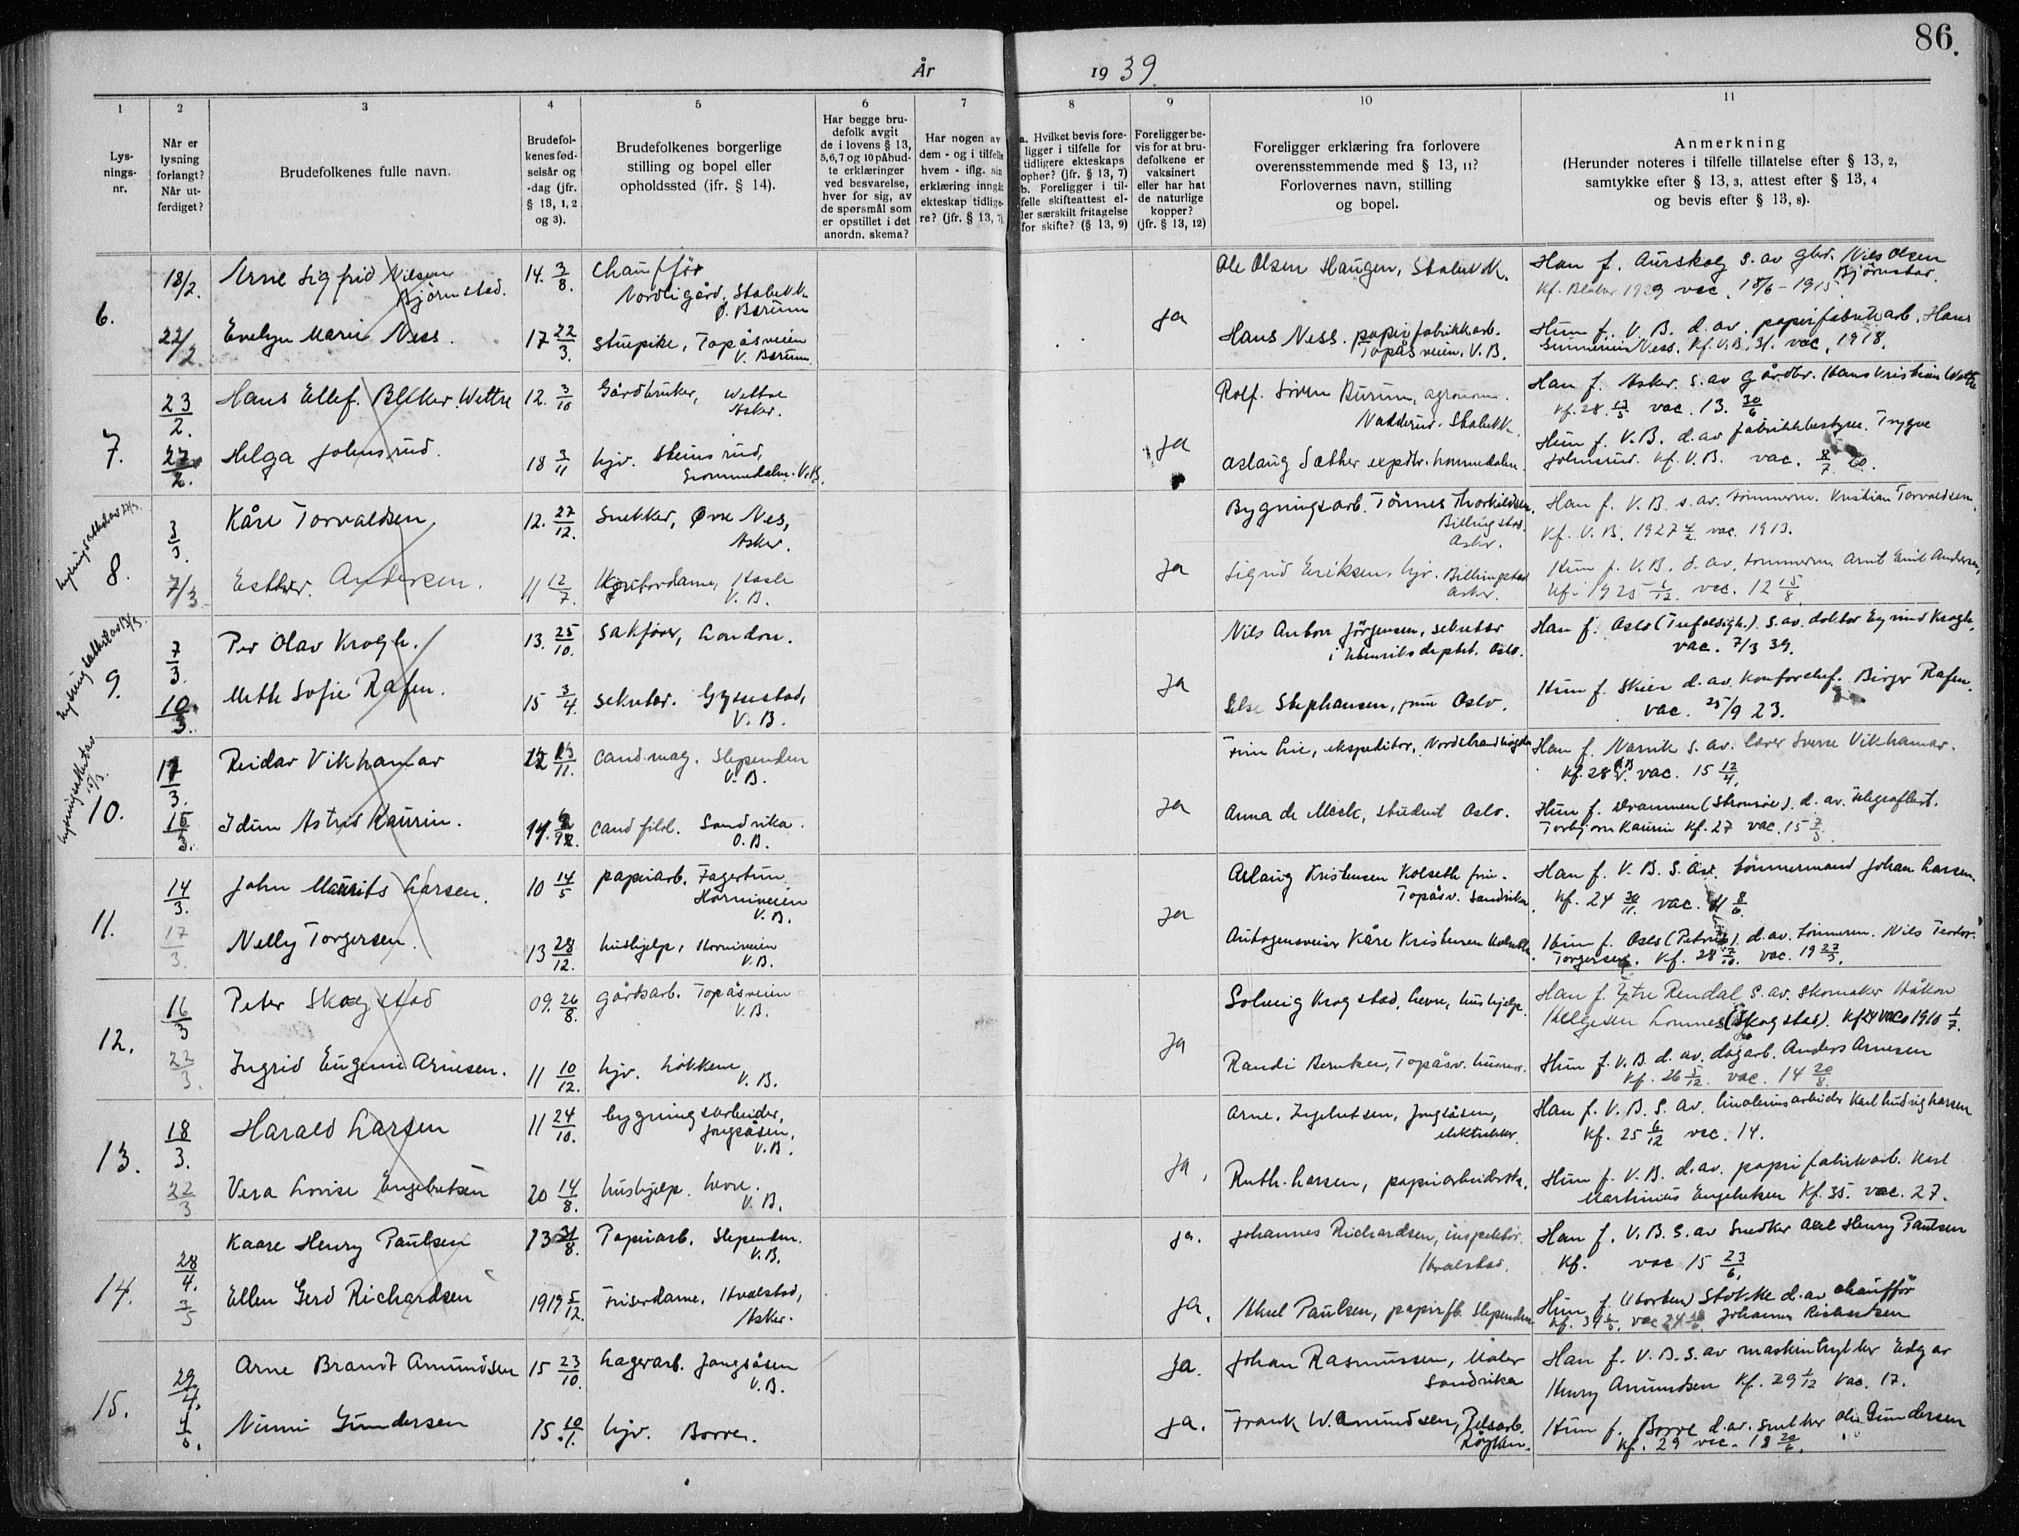 86.
År
19 39.
1
2
3
4
5
6
7
8
9
10
11
Lys-
nings-
nr.
Når er
lysning
forlangt?
Når ut-
ferdiget?
Brudefolkenes fulle navn.
Brudefol-
kenes fød-
selsår og
-dag (jfr.
§ 13, 1, 2
og 3).
Brudefolkenes borgerlige
stilling og bopel eller
opholdssted (jfr. § 14).
Har begge bru-
defolk avgit
de i lovens § 13,
5,6,7 og 10 påbud-
te erklæringer
ved besvarelse,
hver for sig, av
de spørsmål som
er opstillet i det
anordn. skema?
Har nogen av
dem - og i tilfelle
hvem - iflg. sin
erklæring inngåt
ekteskap tidlige-
re? (jfr. § 13, 7)
a. Hvilket bevis fore-
ligger i tilfelle for
tidligere ekteskaps
opher? (jfr. § 13, 7)
b. Foreligger i til-
felle skifteattest el-
ler særskilt fritagelse
for skifte? (§ 13, 9)
Foreligger be-
vis for at bru-
defolkene er
vaksinert
eller har hat
de naturlige
kopper?
(jfr. § 13, 12)
Foreligger erklæring fra forlovere
overensstemmende med § 13, 11?
Forlovernes navn, stilling
og bopel.
Anmerkning
(Herunder noteres i tilfelle tillatelse efter § 13, 2,
samtykke efter § 13, 3, attest efter § 13, 4
og bevis efter § 13, 8).
6.
18/2.
Arne Sigfrid Nilsen
Bjørnstad.
14. 3/8.
Chauffør
Nordligård, Stabekk
Ø. Bærum
Ole Olsen Haugen, Stabekk.
Han f. Aurskog s. av gbr. Nils Olsen
Bjørnstad.
Kf. 1929 vac. 18/6 - 1915
ja
22/2
Evelyn Marie Ness.
17 22/3.
Stuepike, Topåsveien
V. Bærum.
Hans Ness. papirfabrikkarb.
Topåsveien, V. B.
Hun f. V. B. d. av. papirfabrikarb. Hans
Ness. Kf. V. B. 31. vac. 1918.
7.
23/2.
Hans Ellef. Bleker. Wettre
12. 3/10
Gårdbruker, Wettre
Asker.
Rolf. Sören Burum, agronom.
Nadderud. Stabekk.
Han f. Asker. s. av gårdbr. Hans Kristian Wettre
Kf. 28. 13/5 vac. 13. 30/6
ja
27/2.
Helga Johnsrud.
18 3/11
hjv. Steinsrud,
Lommedalen. V. B.
Aslaug Sæther expdtr. Lommedalen.
Hun f. V. B. d. av fabrikkbestyrer. Trygve
Johnsrud. Kf. V. B. vac. 8/7. 20.
8.
lysningsattest av
3/3
Kåre Torvaldsen,
12. 27/12.
Snekker, Øvre Nes,
Asker.
Bygningsarb. Tönnes Thorkildsen
Billingstad
Asker.
Han f. V. B. s. av. tømmerm. Kristian Torvaldsen.
Kf. V. B. 1927 4/2 vac. 1913.
ja
7/3
Esther. Andersen.
11 12/7.
Kontordame, Hasle
V. B.
Sigrid Eriksen, hjv. Billingstad
Asker.
Hun f. V. B. d. av. tømmerm. Arnt Emil Andersen,
Kf. 1925 1/12. vac. 12 15/8.
9.
lysningsattest av 13/3.
7/3.
Per Olav Krogh.
13. 25/10.
Sakfører, London.
Nils Anton Jörgensen, sekretær
i Utenriksdeptet. Oslo.
Han f. Oslo (Trefoldigh.). s. av. doktor Eyvind Krogh,
vac. 7/3 39.
ja
10/3.
Meth Sofie Rafen.
15 3/4.
Sekretær. Gyssestad,
V. B.
Else Stephansen, frue Oslo.
Hun f. Skien d. av. Kontorchef. Birger Rafen.
vac. 25/9 23.
10.
lysningsattest av
15/3.
11/3.
Reidar Vikhamar
12 13/11.
cand. mag. Slependen
V. B.
Finn Lie, ekspeditør, Nordstrandhögda
Han f. Narvik s. av. lærer Sverre Vikhamar.
Kf. 28 vac. 15 12/4.
ja
15/3.
Idun Astrid Kaurin.
14.
cand filol. Sandvika
Ø. B.
Anna de Meck, student Oslo.
Hun f. Drammen (Strømsø). d. av. telegrafbest.
Torbjørn Kaurin Kf. 27 vac. 15 7/5.
11.
14/3.
John Maurits Larsen.
10 14/5
papirarb. Fagertun
Horniveien
V. B.
Aslaug Kristensen Kolseth frue.
Topåsv. Sandvika.
Han f. V. B. S. av. tömmermand Johan Larsen.
Kf. 24 30/11. vac. 11 8/6.
ja
17/3.
Nelly Torgersen.
13 28/12.
hushjelp, Horniveien
V. B.
Autogensveiser Kåre Kristensen Kolseth.
Hun f. Oslo (Petrus). d. av. tömmerm. Nils Teodor
Torgersen. Kf. 28 7/10. vac. 19 27/5.
12.
16/3
Peter Skogstad
09. 26/8.
gårdsarb. Topåsveien
V. B.
Solveig Krogstad, Levre, hushjelp.
Han f. Ytre Rendal s. av. skomaker Håkon
Helgesen Lomnes (Skogstad). Kf 24 vac 1910 1/7.
ja
22/3.
Ingrid Eugenie Arnesen.
11 10/12.
hjv. Løkkene
V. B.
Randi Berntsen, Topåsv. husmor.
Hun f. V. B. d. av. dagarb. Anders Arnesen
Kf. 26 5/12. vac. 14 20/8.
13.
18/3.
Harald Larsen
11 24/10.
bygningsarbeider,
Jongsåsen,
V. B.
Arne. Ingebretsen, Jongsåsen,
elektriker.
Han f. V. B. S. av. linoleumsarbeider Karl Ludvig Larsen
Kf. 25 6/12 vac. 14.
ja.
22/3
Vera Lovise Engebretsen
20 14/8.
hushjelp. Levre.
V. B.
Ruth. Larsen, papirarbeiderske.
Hun f. V. B. d. av. papirfabrikarb. Karl
Martinius Engebretsen Kf. 35. vac. 27.
14.
28/4.
Kaare Henry Paulsen
13 31/8.
Papirarb. Slependen.
V. B.
ja.
Johannes Richardsen, inspektör.
Hvalstad.
Han f. V. B. S. av Snedker Axel Henry Paulsen
Kf. vac 15 23/6.
3/5
Ellen Gerd Richardsen
1919 5/12.
Friserdame, Hvalstad,
Asker.
ja.
Aksel Paulsen, papirfb. Slependen
Hun f. (Borten) Stokke d. av chauffør
Johannes Richardsen
15.
29/4.
Arne Brandt Amundsen
15 23/10.
Lagerarb. Jongsåsen
V. B.
ja.
Johan Rasmussen, Maler
Sandvika
Han f. V. B. S. av maskintrykker Edgar
Henry Amundsen Kf. 29 1/12 vac. 17.
Ninni Gundersen
15 10/1.
hjv. Borre.
ja.
Frank W. Amundsen, Pelsarb.
Röykin.
Hun f. Borre d. av. snekker Ole Gundersen
Kf. 29 vac. 18 20/6.